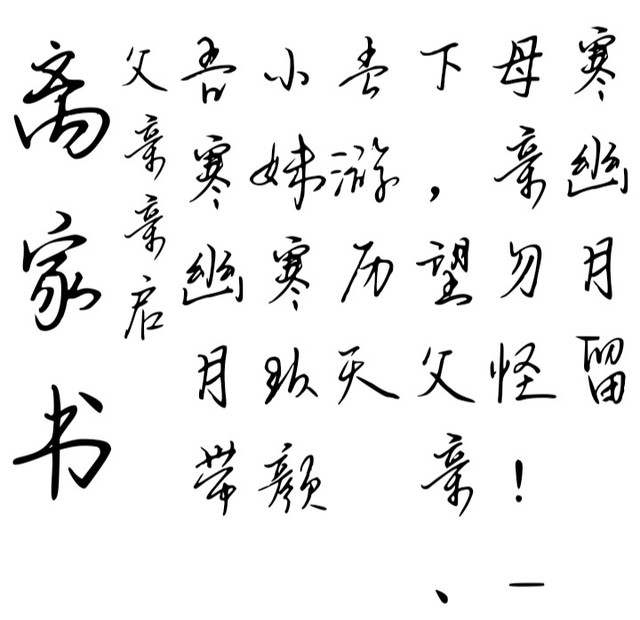 离家书
父亲亲启
吾寒幽月带
小妹寒玖颜
去游历天
下，望父亲、
母亲勿怪！一
寒幽月留